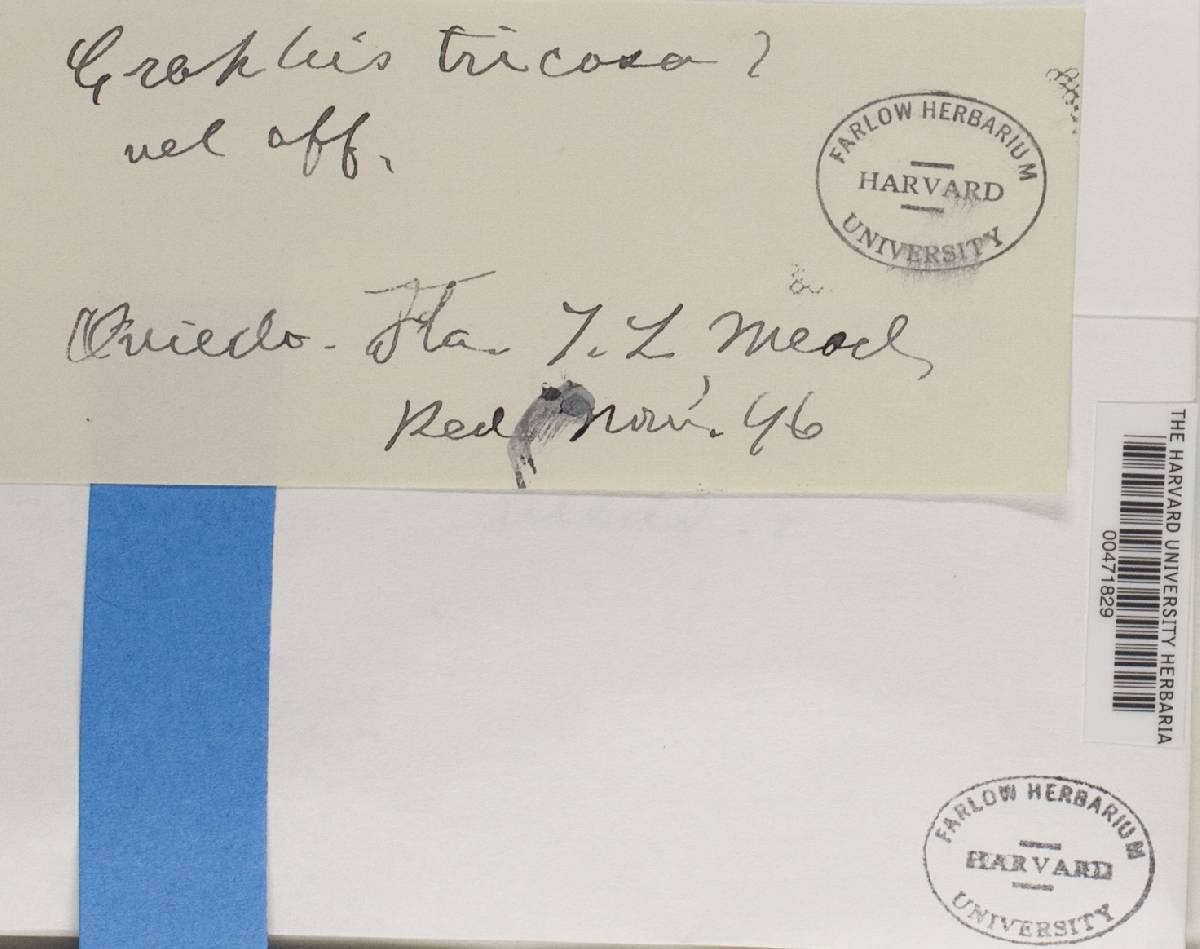 Graphis tricosa ?
vel aff.
FARLOW HERBARIUM
HARVARD
UNIVERSITY
Oviedo. Fla. T. L Mead,
Red Nov. 96
THE HARVARD UNIVERSITY HERBARIA
00471829
FARLOW HERBARIUM
HARVARD
UNIVERSITY